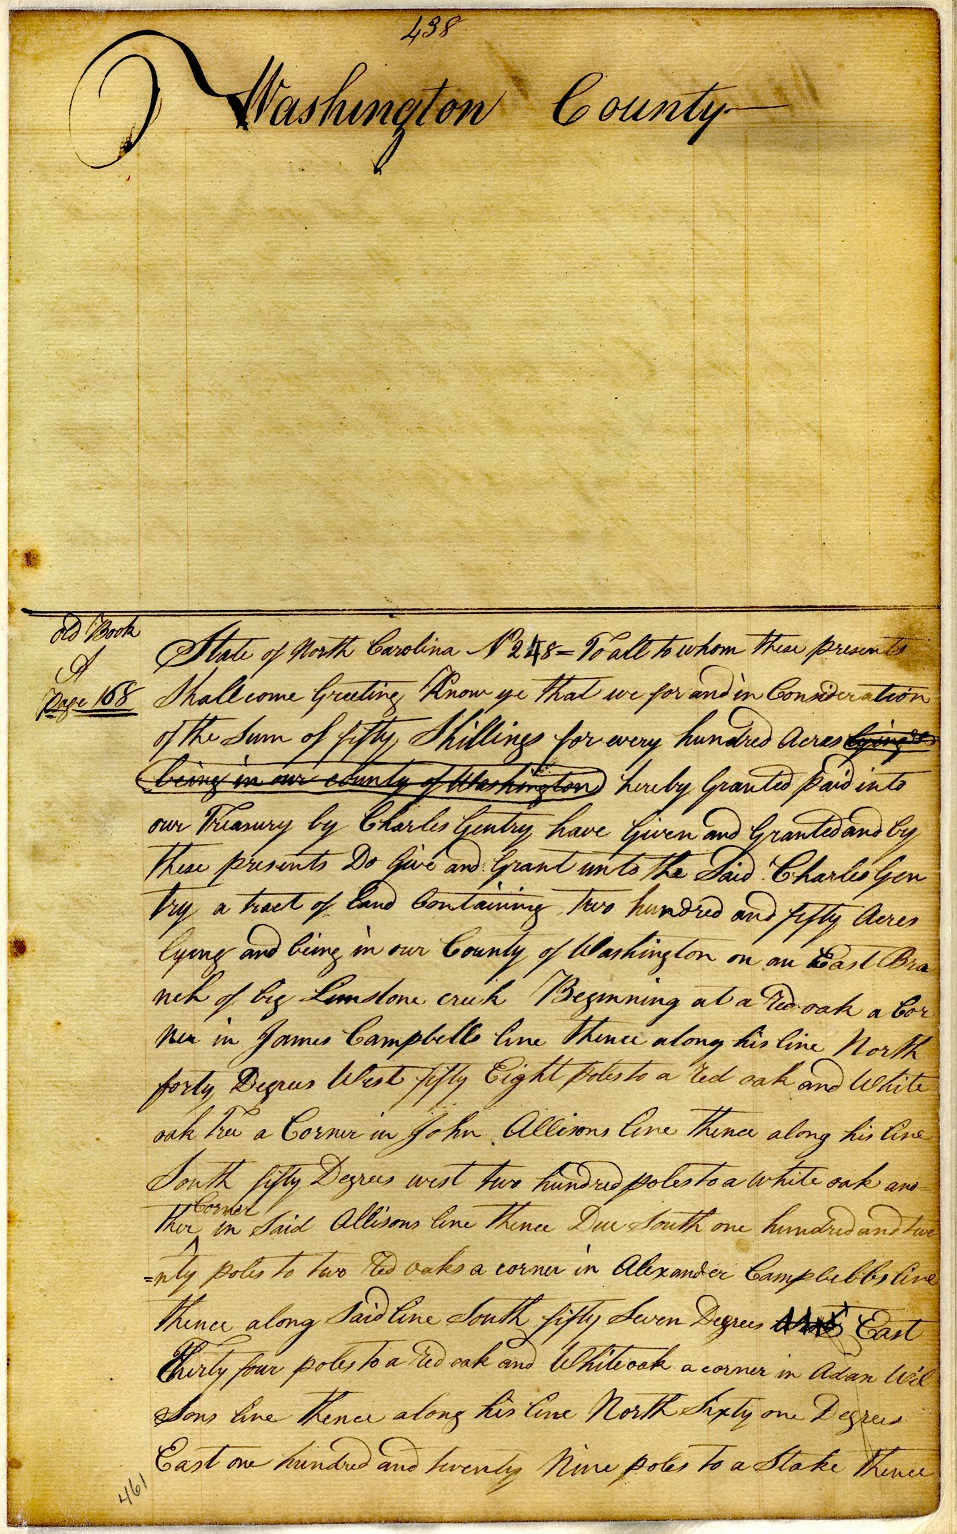 438
Washington County
old Book
A
Page 168
State of North Carolina No 248 = To all to whom these presents
Shall come Greeting Know ye that we for and in Consideration
of the Sum of fifty Shillings for every hundred Acres lying &
being in our county of Washington hereby Granted paid into
our Treasury by Charles Gentry have Given and Granted and by
these presents Do Give and Grant unto the Said Charles Gen
try a tract of Land Containing two hundred and fifty Acres
lying and being in our County of Washington on an East Bra
nch of big Limstone creek Beginning at a Red oak a Cor
ner in James Campbells line thence along his line North
forty Degrees West fifty Eight poles to a red oak and White
oak Tree a Corner in John Allisons line thence along his line
South fifty Degrees west two hundred poles to a white oak ano=
Corner
ther in Said Allisons line thence Due South one hundred and twe
=nty poles to two red oaks a corner in Alexander Campbells line
thence along Said line South fifty Seven Degrees East
Thirty four poles to a red oak and White oak a corner in Adan Wil
Sons line thence along his line North Sixty one Degrees
East one hundred and twenty Nine poles to a Stake thence
461